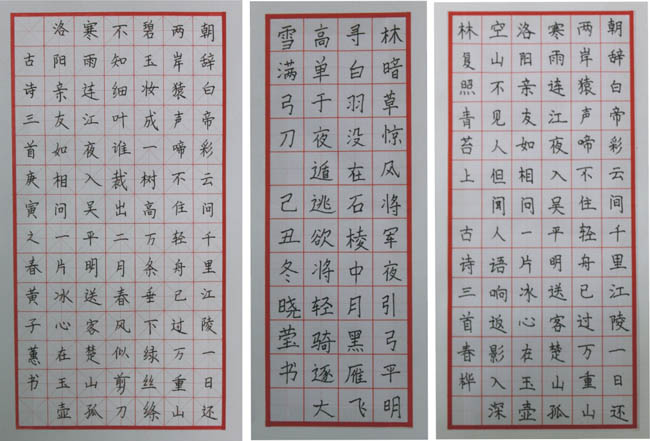 朝辞白帝彩云间千里江陵一日还
两岸猿声啼不住轻舟已过万重山
碧玉妆成一树高万条垂下绿丝绦
不知细叶谁裁出二月春风似剪刀
寒雨连江夜入吴平明送客楚山孤
洛阳亲友如相问一片冰心在玉壶
古诗三首庚寅之春黄子蕙书
林暗草惊风将军夜引弓平明
寻白羽没在石棱中月黑雁飞
高单于夜遁逃欲将轻骑逐大
雪满弓刀 己丑冬晓莹书
朝辞白帝彩云间千里江陵一日还
两岸猿声啼不住轻舟已过万重山
寒雨连江夜入吴平明送客楚山孤
洛阳亲友如相问一片冰心在玉壶
空山不见人但闻人语响返影入深
林复照青苔上 古诗三首春桦